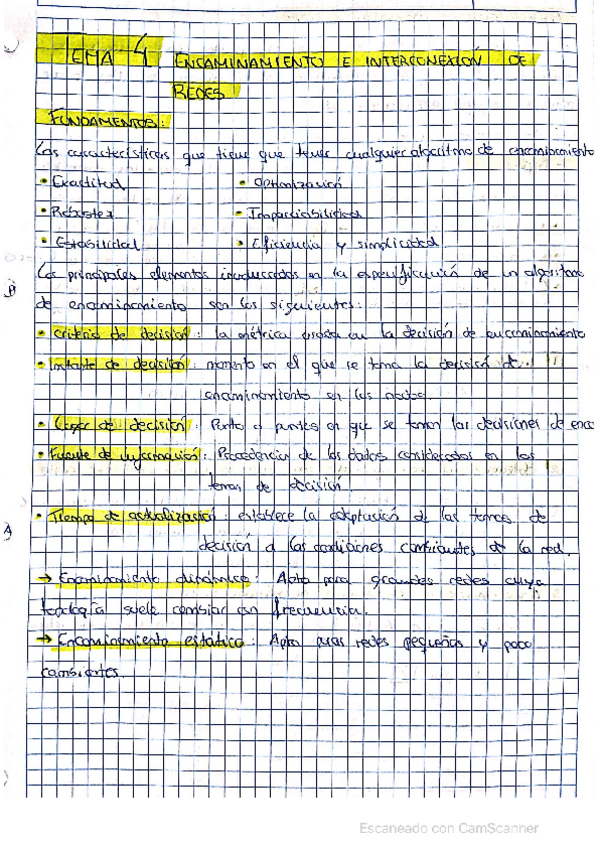 TEMA 4 ENCAMINAMIENTO E INTERCONEXIÓN DE
REDES
FUNDAMENTOS:
Las características que tiene que tener cualquier algoritmo de encaminamiento
• Exactitud • Optimización
• Robustez • Imparcialidad
• Estabilidad • Eficiencia y simplicidad.
Los principales elementos involucrados en la especificación de un algoritmo
de encaminamiento son los siguientes:
• Criterio de decisión: la métrica usada en la decisión de encaminamiento
• Instante de decisión: momento en el que se toma la decisión de
encaminamiento en los nodos
• Lugar de decisión: Punto o puntos en que se toman las decisiones de enca
• Fuente de información: Procedencia de los datos considerados en las
tomas de decisión
• Tiempo de actualización: establece la adaptación de las tomas de
decisión a las condiciones cambiantes de la red.
→ Encaminamiento dinámico: Apto para grandes redes cuya
topología suele cambiar con frecuencia.
→ Encaminamiento estático: Apto para redes pequeñas y poco
cambiantes.
Escaneado con CamScanner